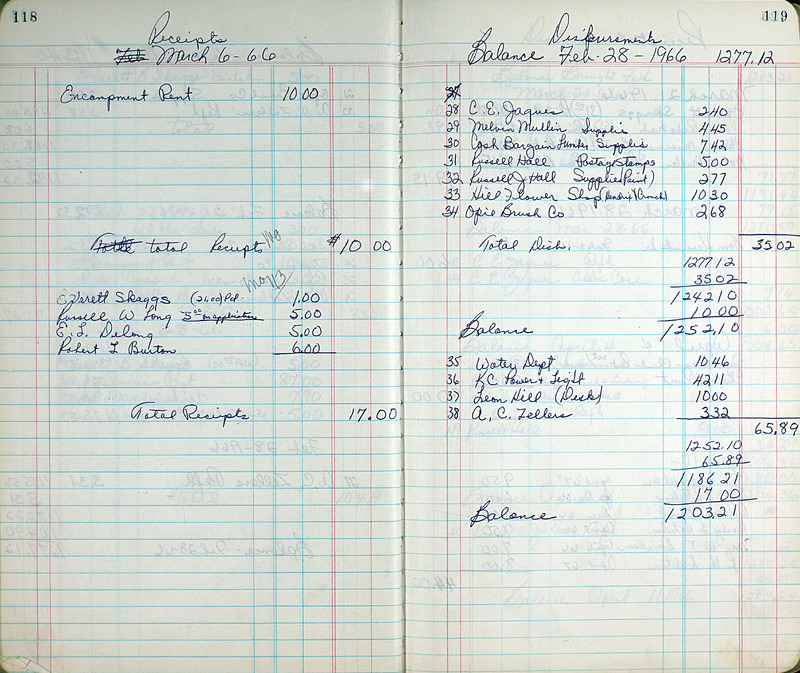 118
Receipts
Feb March 6-66
Encampment Rent 10.00
Total total Receipts $10 00
Everett Skaggs (21.00) Pd. 1.00
Russell W Long 5.00 on application 5.00
E. L. DeLong 5.00
Robert L Burton 6.00
Total Receipts 17.00
119
Disbursments
Balance Feb. 28-1966 1277.12
27
28 C. E. Jaques 2 40
29 Melvin Mullin Supplies 4 45
30 Cash Bargain Supplies 7 42
31 Russell Hall Postage Stamps 5.00
32 Russell J Hall Supplies (Paint) 2 77
33 Hill Flower Shop 10 30
34 Opie Brush Co 2 68
Total Disb. 35 02
1277 12
35 02
1242 10
10 00
Balance 1252,10
35 Water Dept 10 46
36 KC Power & Light 42 11
37 Leon Hill (Desk) 10 00
38 A. C. Zellers 3 32
65.89
1252.10
65.89
1186 21
17 00
Balance 1203.21